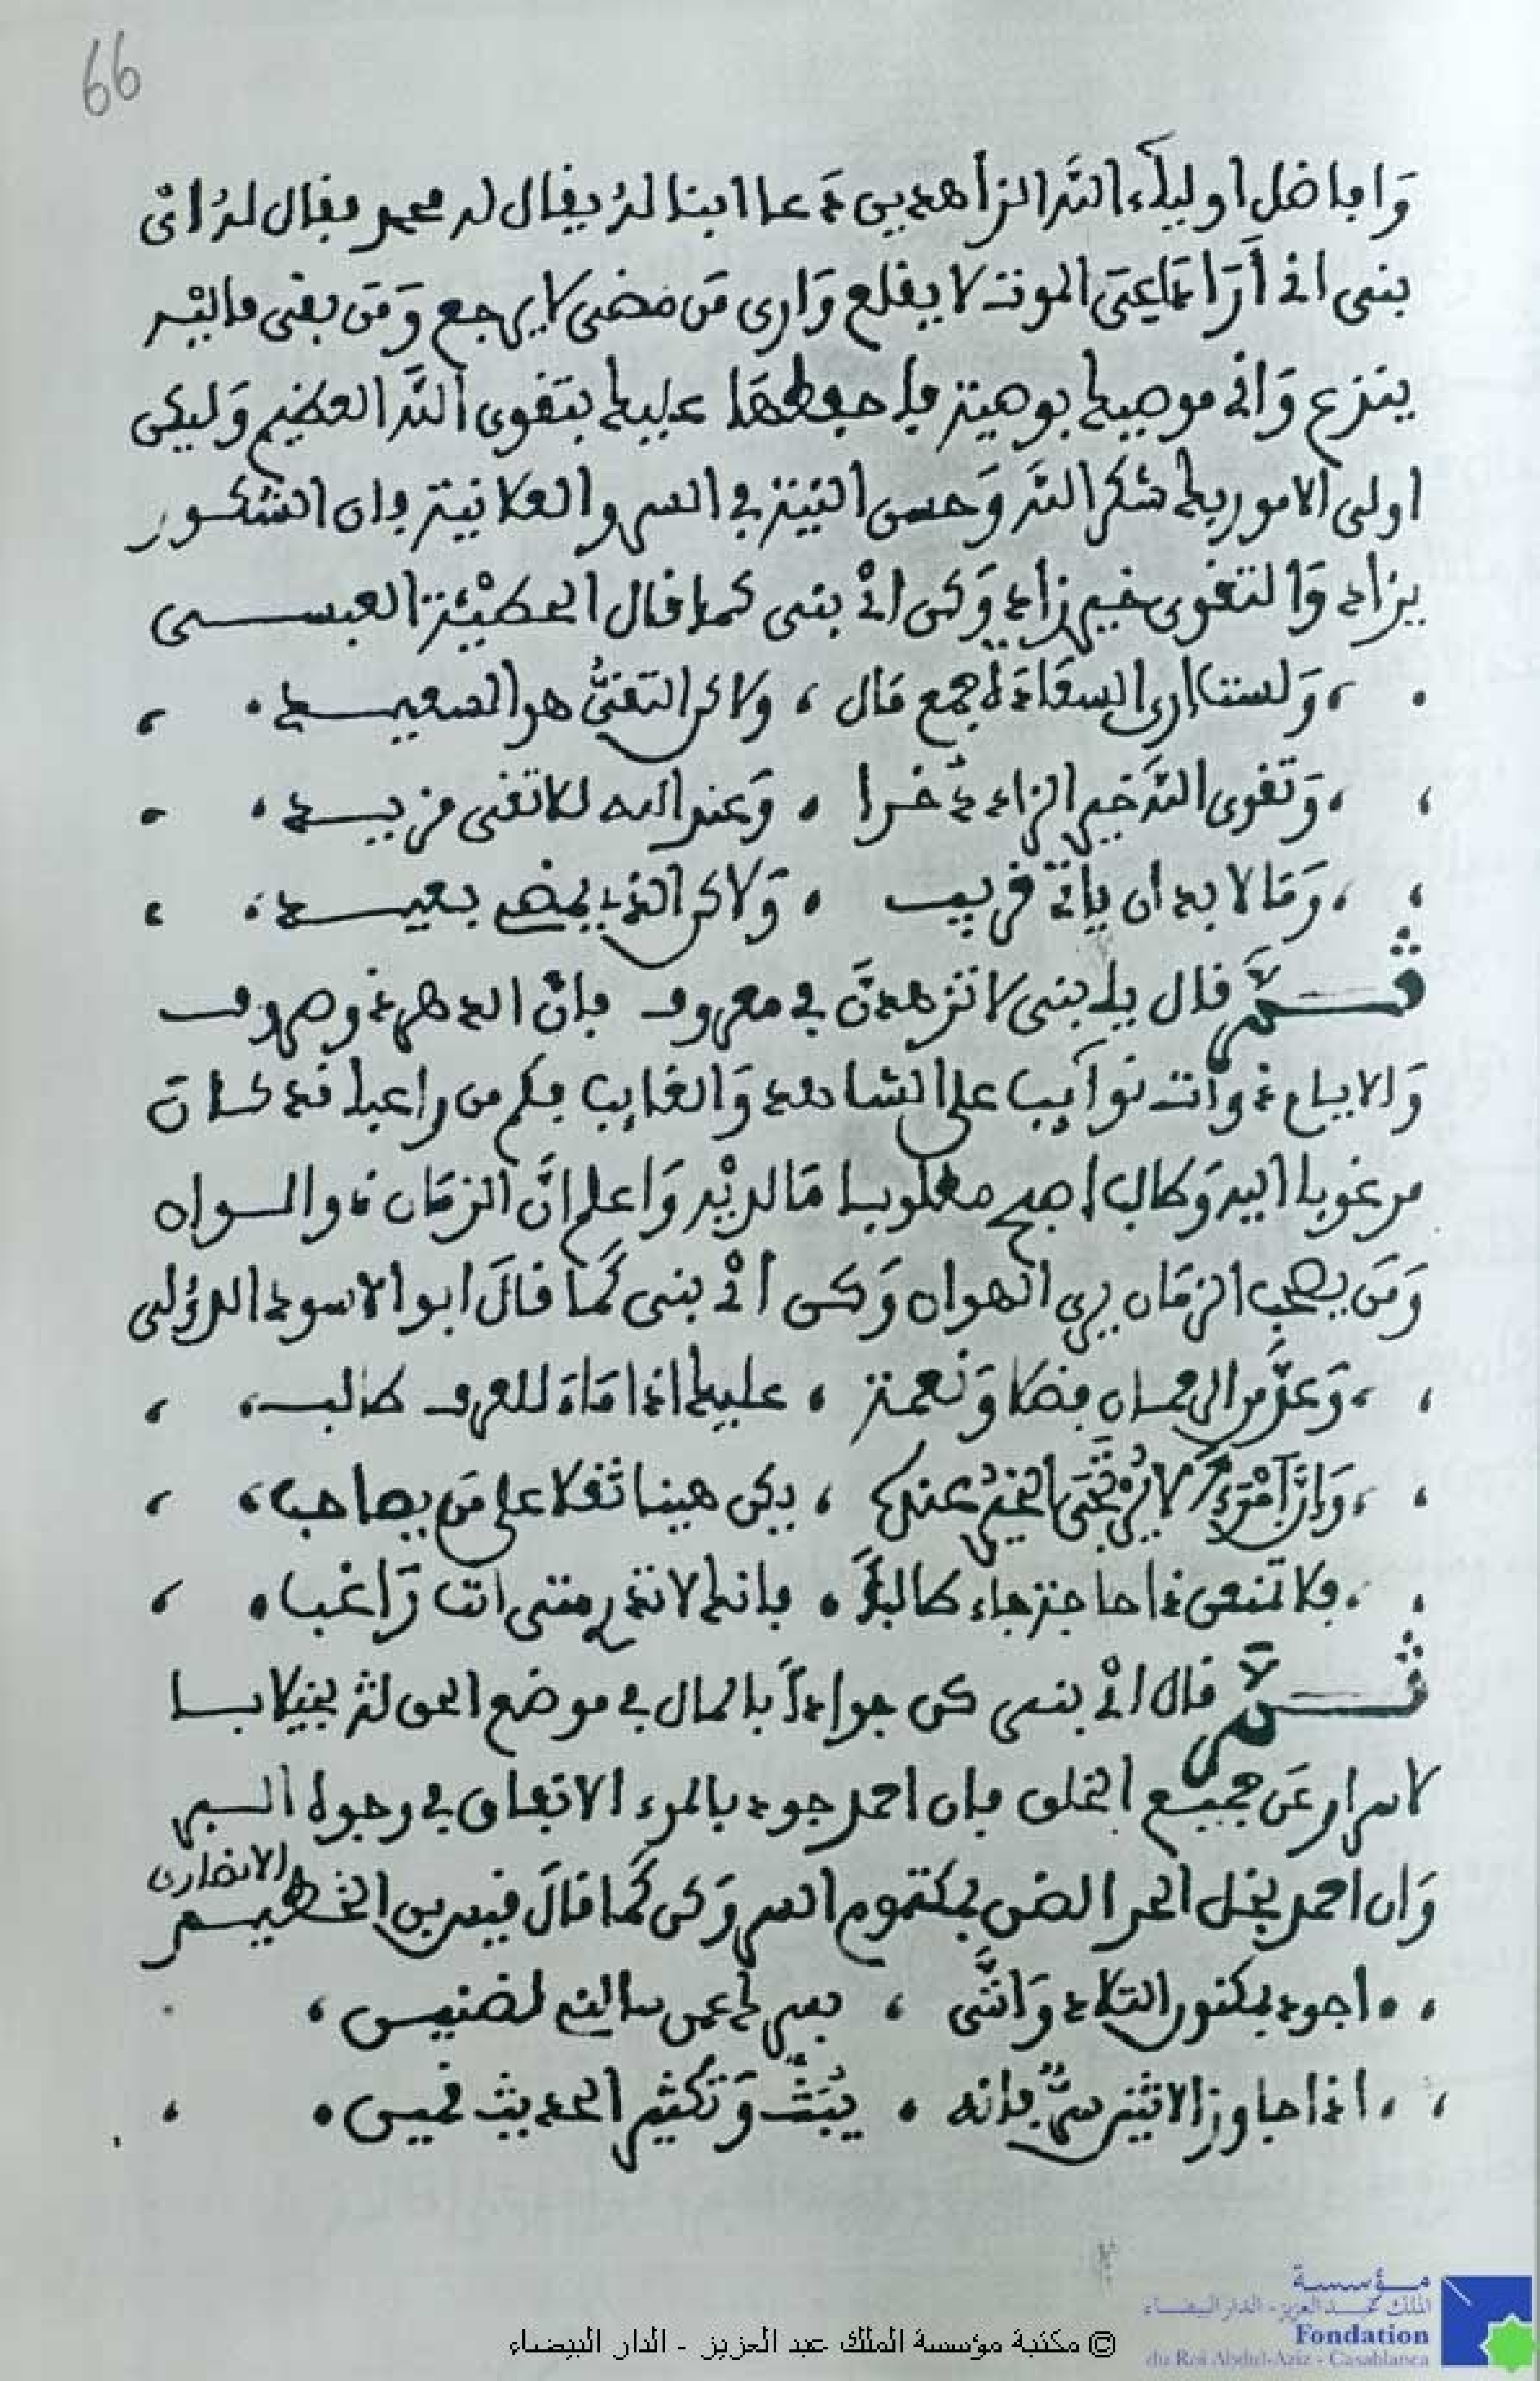 66
وَافاضل اوليآء اللَّه الزاهدين دَعا ابنا لهُ يقال له محمد فقال لهُ اىْ
بنى انى أرَا دَاعِىَ الموت لا يقلع وَارى مَن مضى لا يرجع وَمَن بقى فاليْه
ينزع وَانى موصيك بوصية فاحفظهَا عليك بتقوى اللَّه العظيم وَليكن
اولى الامور بك شكر اللَّه وَحسن النية في السر والعلانية فان الشكور
يزاد وَالتقوى خير زاد وَكن اىْ بنى كما قال الحطيْئة العبسى
، وَلست ارى السعادَة جمع مَال ، ولاكن التقىُّ هو السعيد ،
، وَتقوى اللَّه خير الزاد دخرا ، وَعند الله للاتقى مزيد ،
، وَمَا لا بد ان ياتى قريب ، وَلاكن الذى يمضى بعيد ،
ثم قال يا بنى لا تزهدنَّ في معروف فانْ الدهر ذو صروف
وَالايام ذوات نوآيب على الشاهد وَالغايب فكم من راغب قد كان
مرغوبا اليه وَطالب اصبح مطلوبا مَا لديْه وَاعلم انَّ الزمَان ذو الوان
وَمَن يصحب الزمَان يرى الهوان وَكن اىْ بنى كَمَا قالَ ابو الاسود الدؤلى
، وَعدّ من الرحمان فضلا وَنعمة ، عليك اذا مَا جَاء للعرف طالب ،
، وَانَّ امْرَءً لا يُرْتَجَى الخيْرُ عنده ، يكن هينا ثقلا على مَن يصاحب ،
، فلا تمنعن ذا حاجة جاء طالباً ، فانك لا تدرى متى انت رَاغب ،
ثم قال اىْ بنى كن جواداً بالمال في موضع الحق له بخيلا با
لاسرار عَن جميع الخلق فان احمد جود بالمرء الانفاق في وجوه البر
وَان احمد بخل الحر الضن بمكتوم السر وَكن كَمَا قالَ قيس بن الخطيم الانصارى
، اجود بمكنون التلاد وَانَّنى ، بسرك عمن سالنى لضنين ،
، اذا جاوز الاثنين سرٌّ فانه ، يُبَثّ وَتكثير الحديث قمين ،
مؤسسة
الملك عبد العزيز - الدار البيضاء
Fondation
du Roi Abdul-Aziz - Casablanca
© مكتبة مؤسسة الملك عبد العزيز - الدار البيضاء